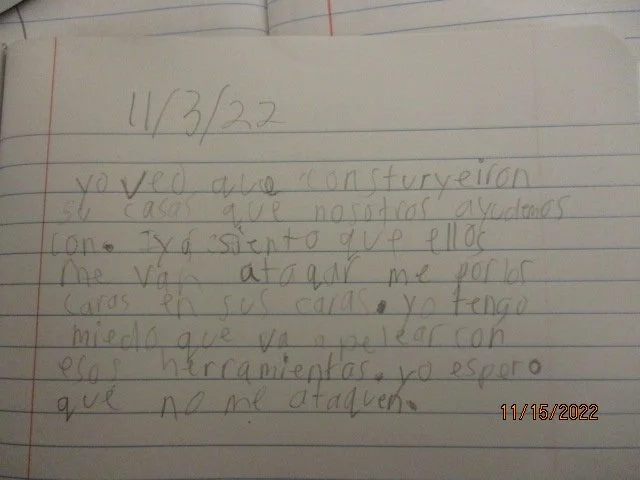 11/3/22
yo veo que consturyeiron
su casas que nosotros ayudemos
con. Iyo siento que ellos
me van atoqar me por los
caras en sus caras. yo tengo
miedo que va a pelear con
esos herramientas. yo espero
que no me ataquen.
11/15/2022